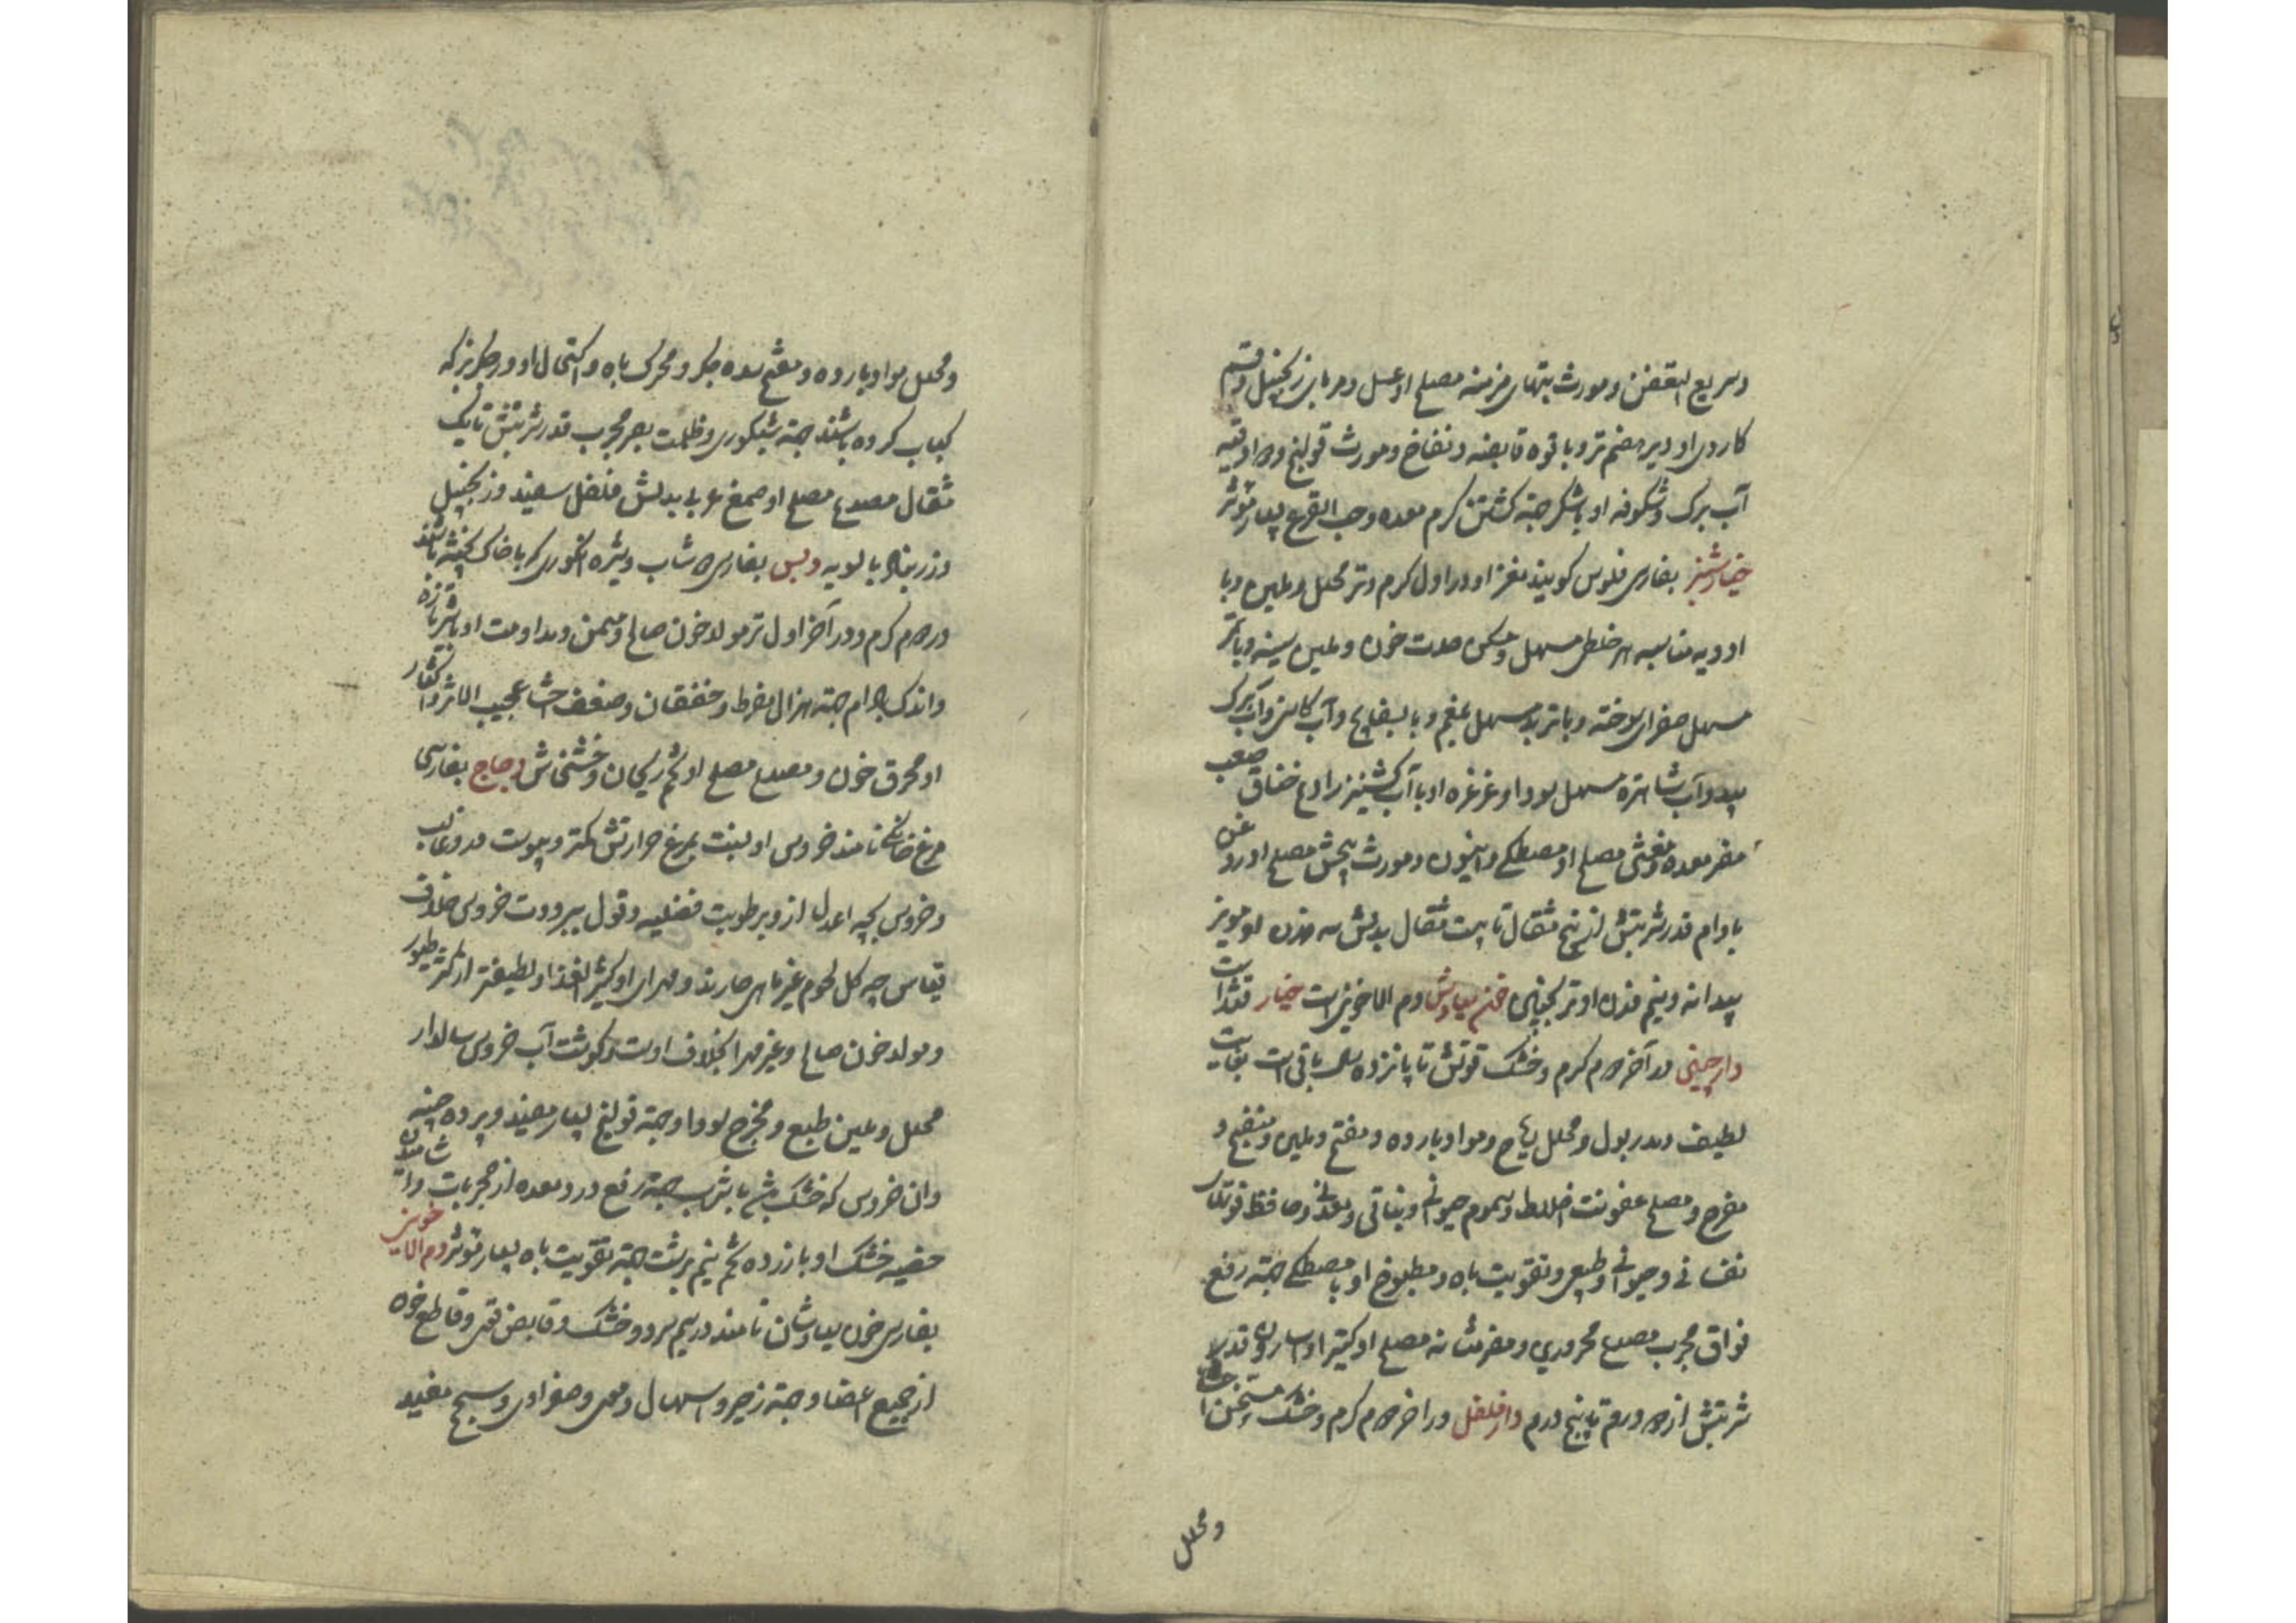 وسریع التعفن ومورث تبهای مزمنه مصلح او عسل ومربای زنجبیل وقسم
کاردی او دیر هضم تر و با قوه قابضه ونفاخ ومورث قولنج و دو اوقیه
آب برک وشکوفه او با شکر جهته کشتن کرم معده وحب القرع بسیار موثر
خیارشنبر بفارسی فلوس کویند مغز او در اول کرم وتر محلل وملین وبا
ادویه مناسبه هر خلطی مسهل ومسکن حدت خون وملین سینه وبا تمر
مسهل صفرای سوخته وبا تربد مسهل بلغم وبا بسفایج وآب کاسنی وآب برک
بید وآب شاهتره مسهل سودا وغرغره او با آب کشنیز رادع خناق صعب
مضر معده ومغثی مصلح او مصطکی وانیسون ومورث پیچش مصلح او روغن
بادام قدر شربتش از پنج مثقال تا بیست مثقال بدلش سه وزن او مویز
بیدانه ونیم وزن او ترنجبین خون سیاوش دم الاخوین است خیار قثد است
دارچینی در آخر دوم کرم وخشک قوتش تا پانزده سال باقی است بغایت
لطیف ومدر بول ومحلل ریاح ومواد بارده ومفتح وملین ومنضج و
مفرح ومصلح عفونت اخلاط وسموم حیوانی ونباتی ومعدنی وحافظ قوتهای
نفسانی وحیوانی وطبیعی وتقویت باه ومطبوخ او با مصطکی جهته رفع
فواق مجرب مصدع محروری ومضر مثانه مصلح او کتیرا واسارون قدر
شربتش از دو درم تا پنج درم دارفلفل در آخر دوم کرم وخشک ومسخن احشا
ومحلل
ومحلل مواد بارده ومفتح سده جکر ومحرک باه واکتحال او در جکر بز که
کباب کرده باشند جهته شبکوری وظلمت بصر مجرب قدر شربتش تا یک
مثقال مصدع مصلح او صمغ عربی بدلش فلفل سفید وزنجبیل
وزرنباد بالسویه دبس بفارسی دوشاب وشیره انکوری که با خاک پخته باشند
در دوم کرم ودر آخر اول تر مولد خون صالح ومسمن ومداومت او با شیر تازه
واندک بادام جهته هزال مفرط وخفقان وضعف احشا عجیب الاثر واکثار
او محرق خون ومصدع مصلح او تخم ریحان وخشخاش دجاج بفارسی
مرغ خانکی نامند خروس او نسبت بمرغ حرارتش کمتر ویبوست در وغالب
وخروس بچه اعدل از و برطوبت فضلیه وقول ببرودت خروس خلاف
قیاس چه کل لحوم غیر ماهی حارند ومهرای او کثیر الغذا ولطیفتر از اکثر طیور
ومولد خون صالح وغیر مهرا بخلاف اوست وکوشت آب خروس سالدار
محلل وملین طبع ومخرج سودا وجهته قولنج بسیار مفید وپرده چینه
دان خروس که خشک باشد با شراب جهته رفع درد معده از مجربات وآشامیدن
خصیه خشک او با زرده تخم نیم برشت جهته تقویت باه بسیار موثر دم الاخوین
بفارسی خون سیاوشان نامند در سیم سرد وخشک وقابض قوی وقاطع خون
از جمیع اعضا وجهته زحیر واسهال دموی وصفراوی وسحج مفید